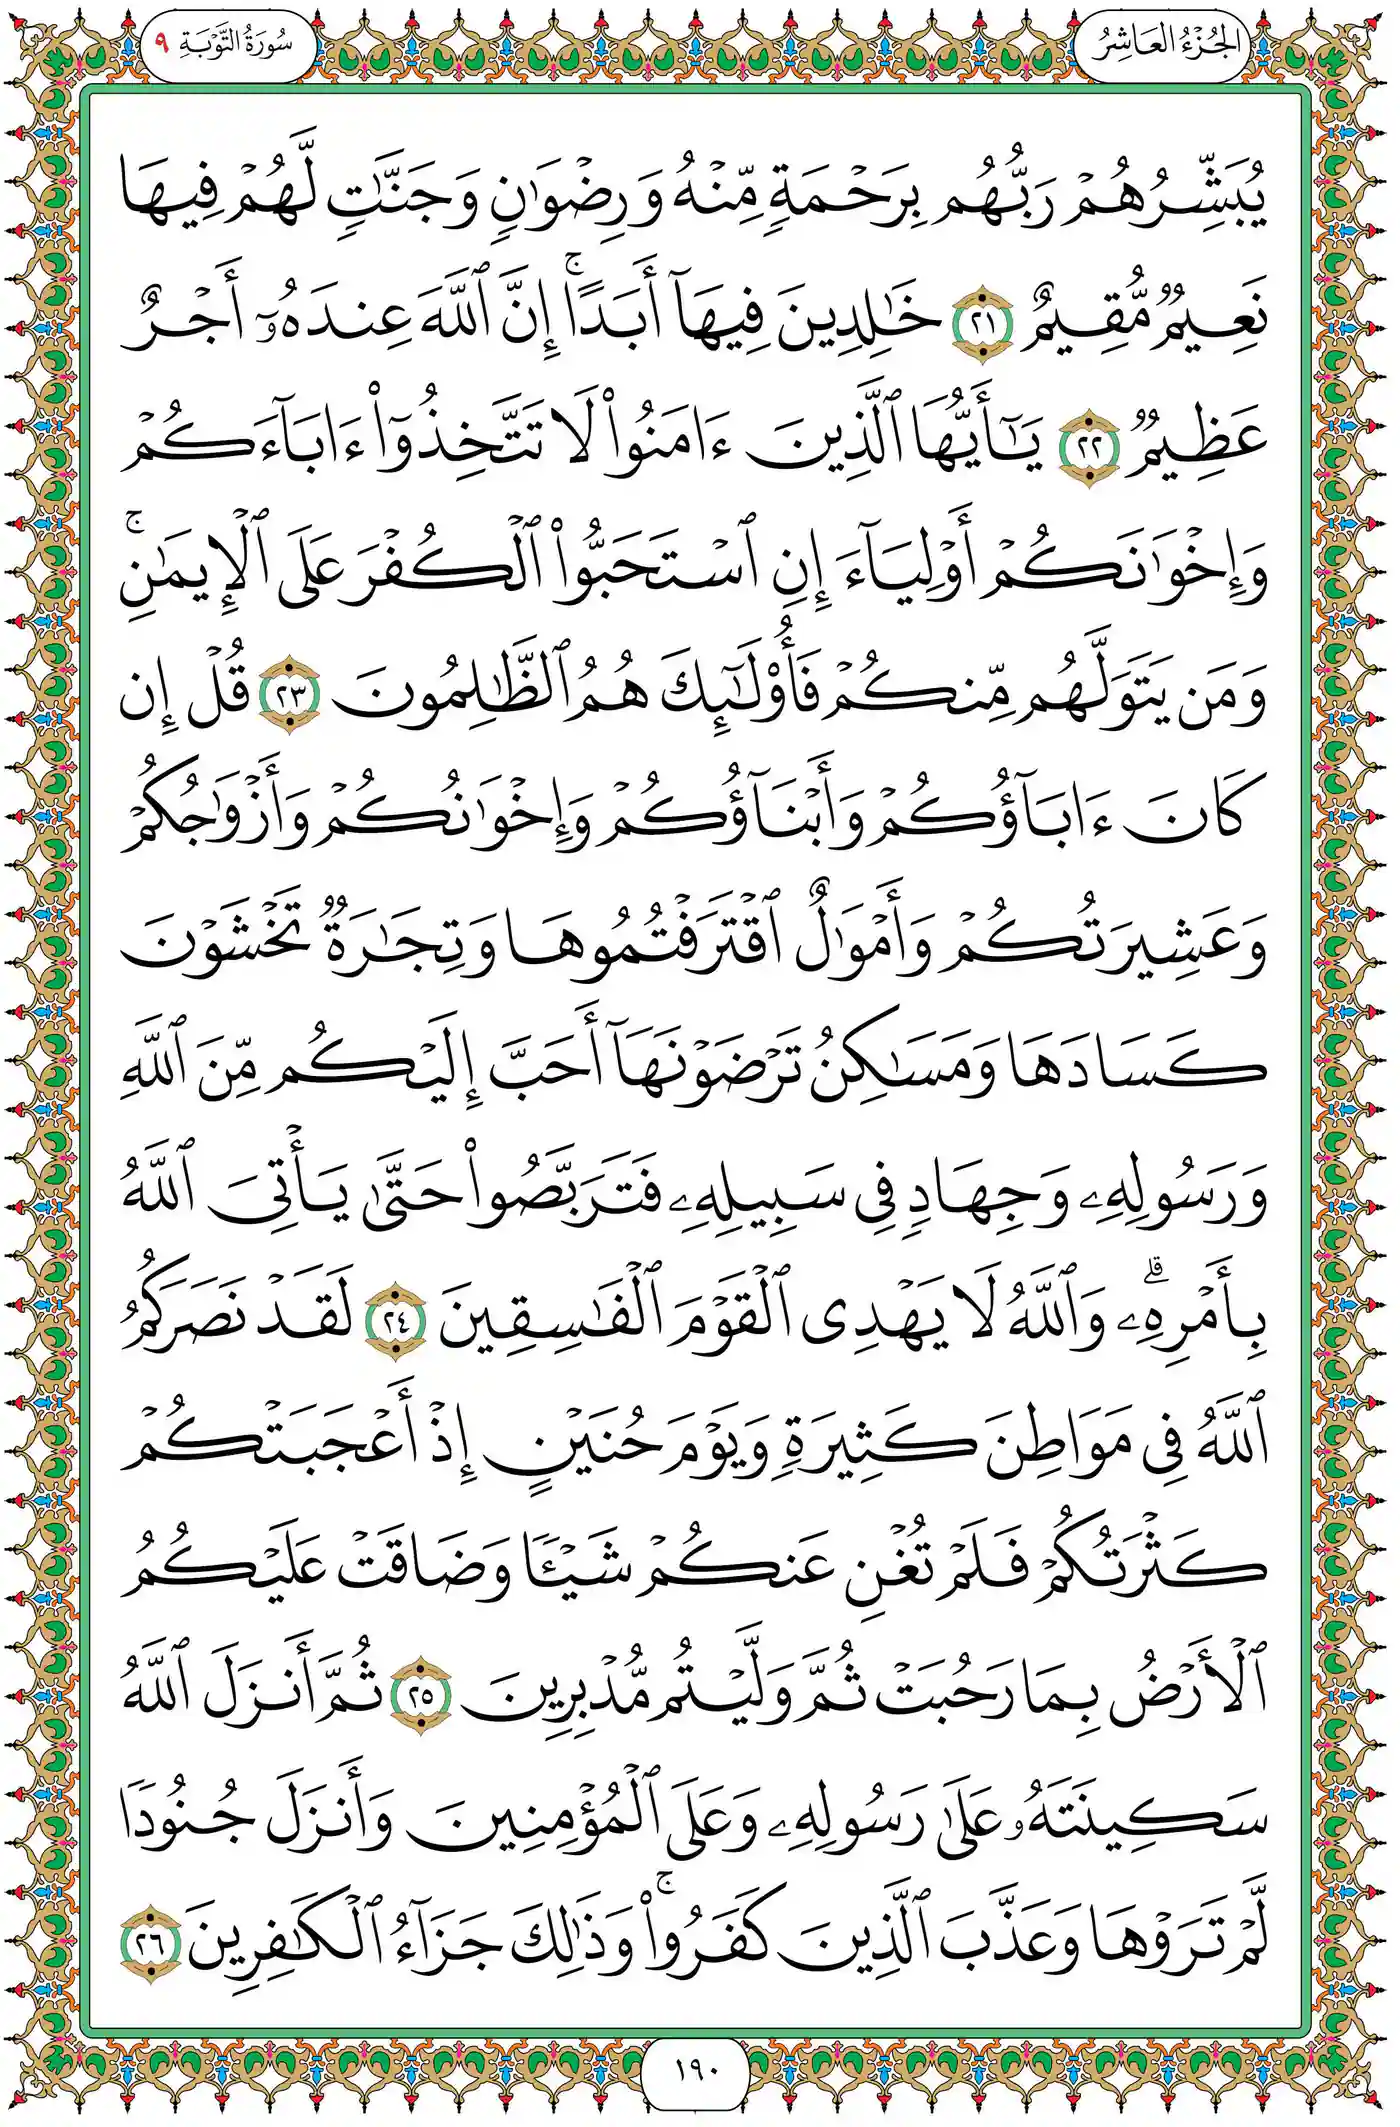 الجُزْءُ العَاشِرُ
سُورَةُ التَّوْبَةِ ٩
يُبَشِّرُهُمْ رَبُّهُم بِرَحْمَةٍ مِّنْهُ وَرِضْوَٰنٍ وَجَنَّٰتٍ لَّهُمْ فِيهَا
نَعِيمٌ مُّقِيمٌ ٢١ خَٰلِدِينَ فِيهَآ أَبَدًا ۚ إِنَّ ٱللَّهَ عِندَهُۥٓ أَجْرٌ
عَظِيمٌ ٢٢ يَٰٓأَيُّهَا ٱلَّذِينَ ءَامَنُوا۟ لَا تَتَّخِذُوٓا۟ ءَابَآءَكُمْ
وَإِخْوَٰنَكُمْ أَوْلِيَآءَ إِنِ ٱسْتَحَبُّوا۟ ٱلْكُفْرَ عَلَى ٱلْإِيمَٰنِ ۚ
وَمَن يَتَوَلَّهُم مِّنكُمْ فَأُو۟لَٰٓئِكَ هُمُ ٱلظَّٰلِمُونَ ٢٣ قُلْ إِن
كَانَ ءَابَآؤُكُمْ وَأَبْنَآؤُكُمْ وَإِخْوَٰنُكُمْ وَأَزْوَٰجُكُمْ
وَعَشِيرَتُكُمْ وَأَمْوَٰلٌ ٱقْتَرَفْتُمُوهَا وَتِجَٰرَةٌ تَخْشَوْنَ
كَسَادَهَا وَمَسَٰكِنُ تَرْضَوْنَهَآ أَحَبَّ إِلَيْكُم مِّنَ ٱللَّهِ
وَرَسُولِهِۦ وَجِهَادٍ فِى سَبِيلِهِۦ فَتَرَبَّصُوا۟ حَتَّىٰ يَأْتِىَ ٱللَّهُ
بِأَمْرِهِۦ ۗ وَٱللَّهُ لَا يَهْدِى ٱلْقَوْمَ ٱلْفَٰسِقِينَ ٢٤ لَقَدْ نَصَرَكُمُ
ٱللَّهُ فِى مَوَاطِنَ كَثِيرَةٍ وَيَوْمَ حُنَيْنٍ إِذْ أَعْجَبَتْكُمْ
كَثْرَتُكُمْ فَلَمْ تُغْنِ عَنكُمْ شَيْـًٔا وَضَاقَتْ عَلَيْكُمُ
ٱلْأَرْضُ بِمَا رَحُبَتْ ثُمَّ وَلَّيْتُم مُّدْبِرِينَ ٢٥ ثُمَّ أَنزَلَ ٱللَّهُ
سَكِينَتَهُۥ عَلَىٰ رَسُولِهِۦ وَعَلَى ٱلْمُؤْمِنِينَ وَأَنزَلَ جُنُودًا
لَّمْ تَرَوْهَا وَعَذَّبَ ٱلَّذِينَ كَفَرُوا۟ ۚ وَذَٰلِكَ جَزَآءُ ٱلْكَٰفِرِينَ ٢٦
١٩٠